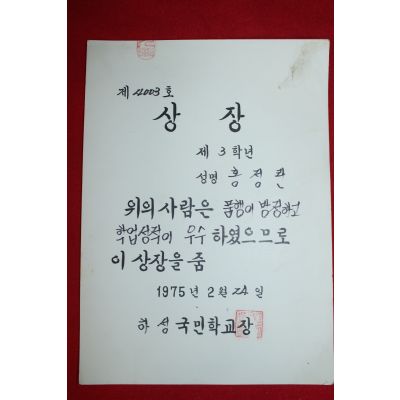 제 4003 호
상 장
제 3 학년
성명 홍정관
위의 사람은 품행이 방정하고
학업성적이 우수 하였으므로
이 상장을 줌
1975 년 2 월 24 일
하성 국민학교장